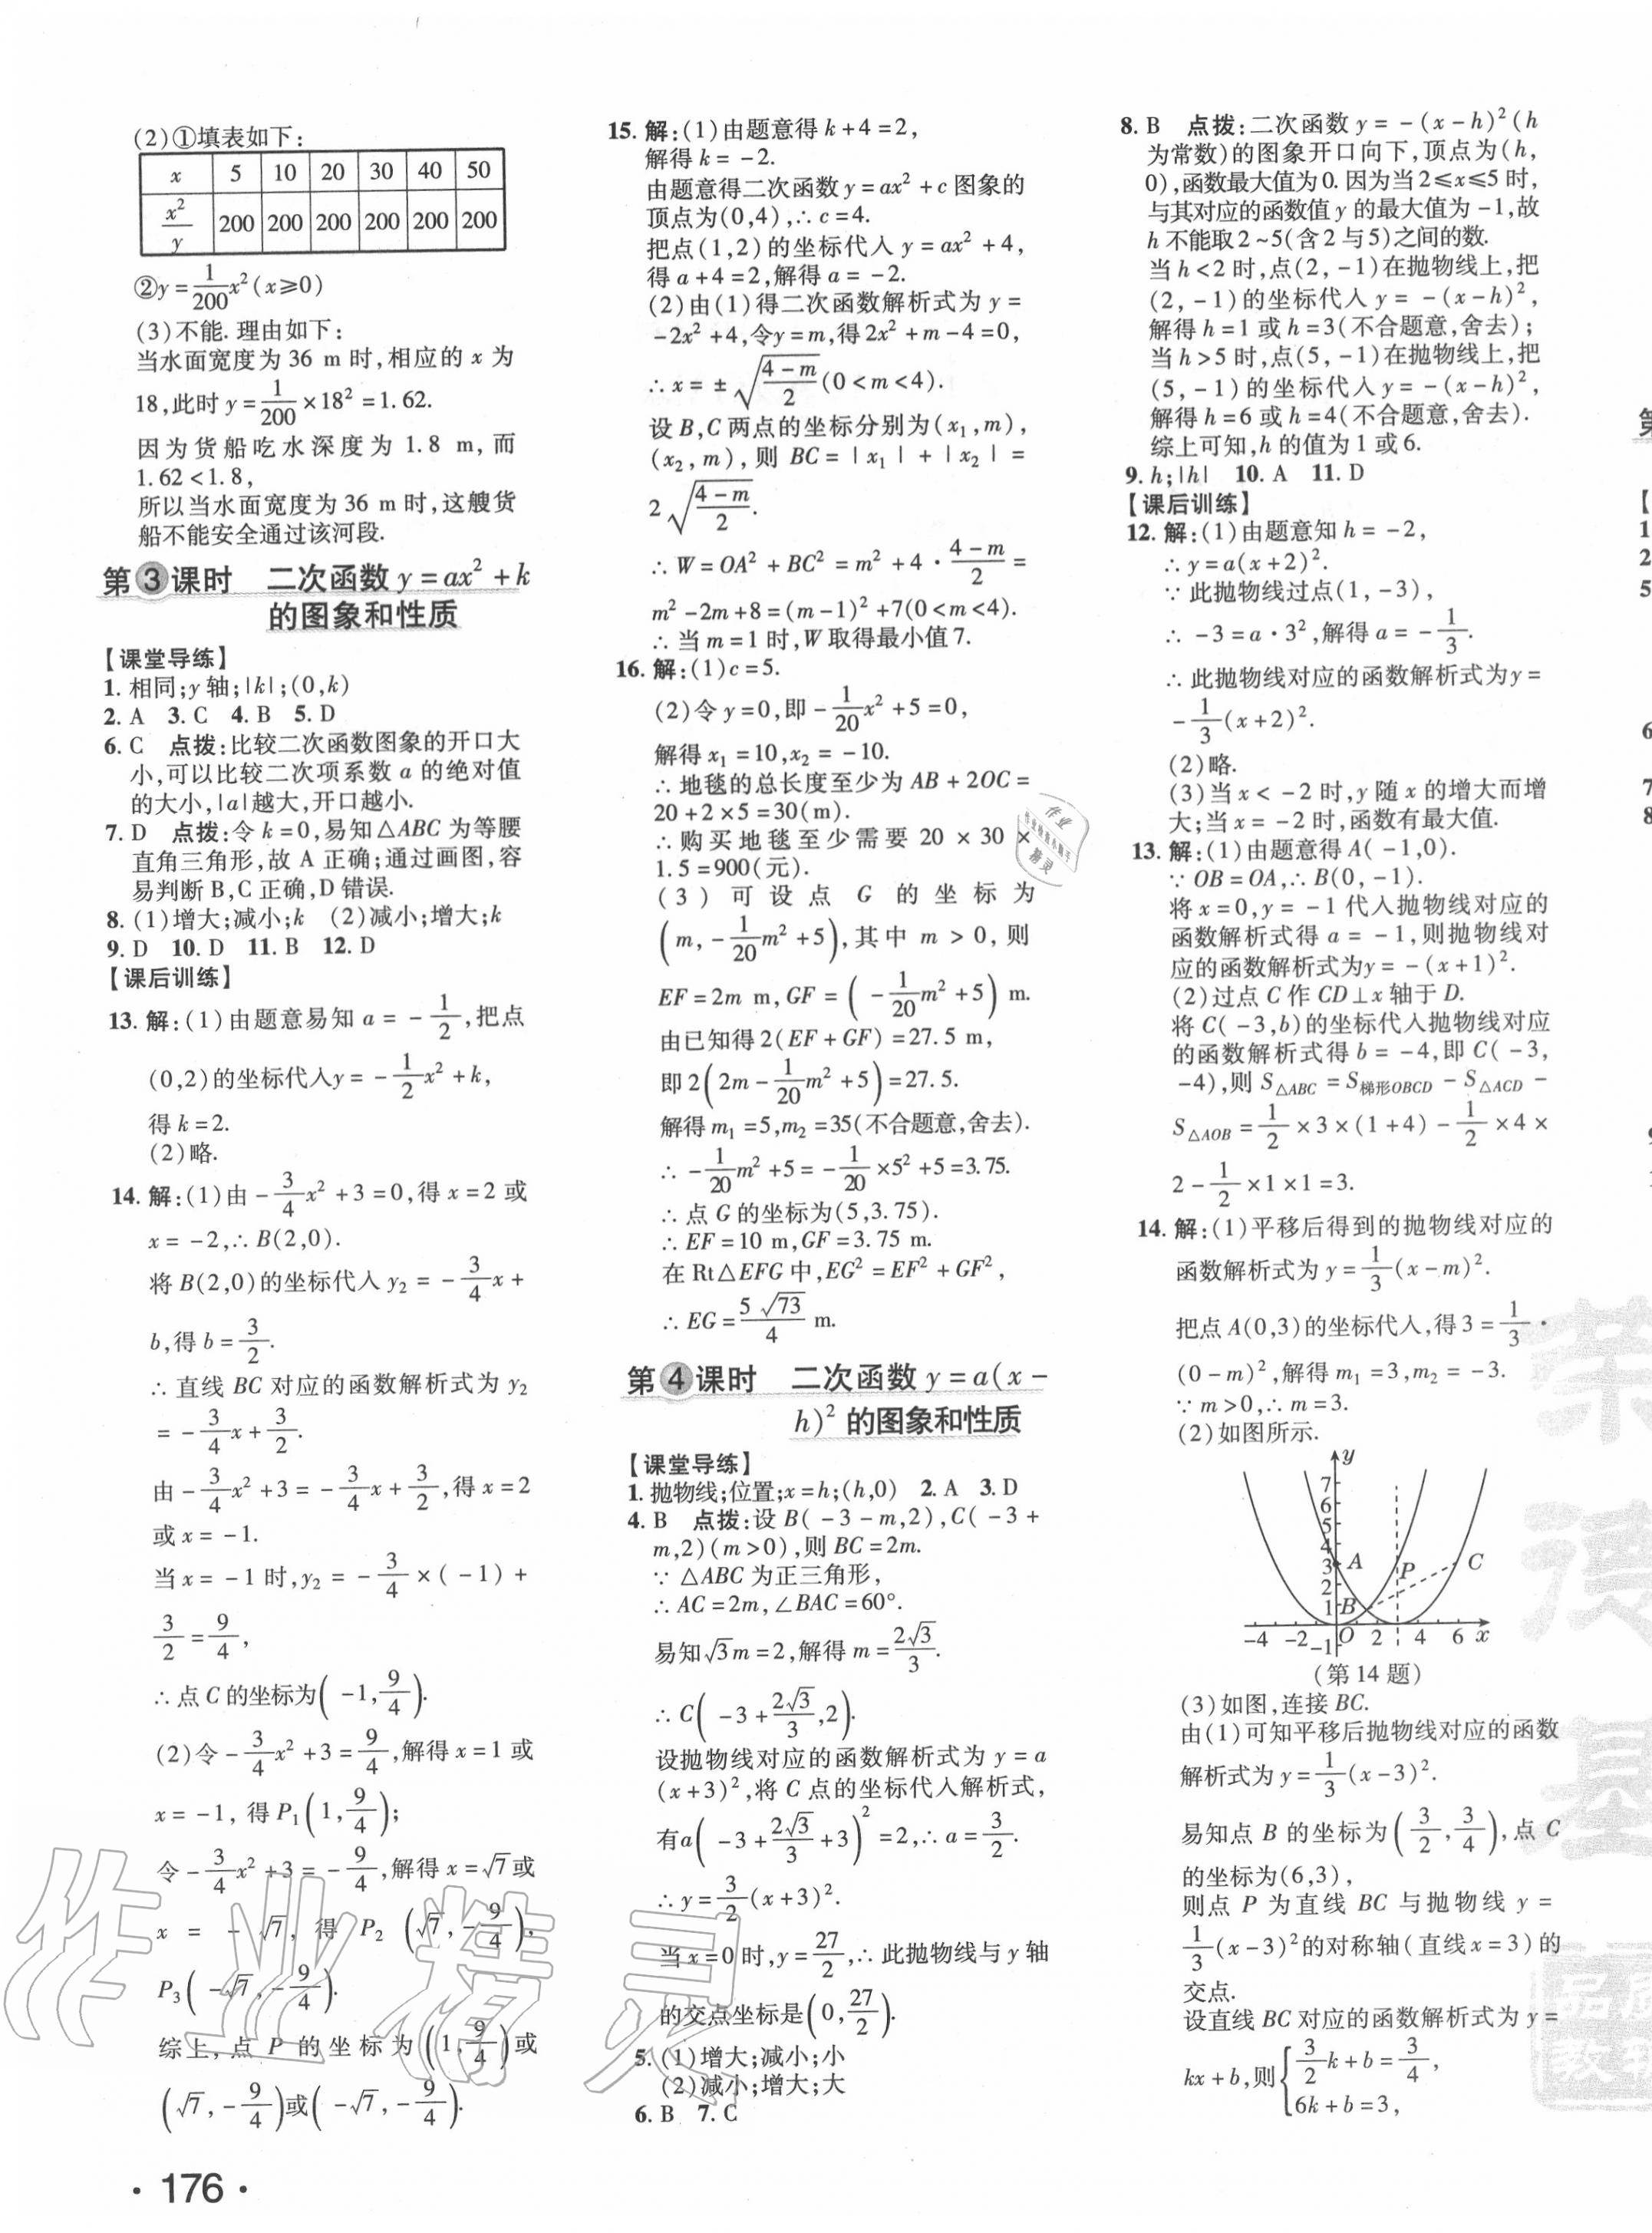 (2)①填表如下:
x 5 10 20 30 40 50
x²/y 200 200 200 200 200 200
②y=1/200x²(x≥0)
(3)不能.理由如下:
当水面宽度为36 m时,相应的x为
18,此时y=1/200×18²=1.62.
因为货船吃水深度为1.8 m,而
1.62<1.8,
所以当水面宽度为36 m时,这艘货
船不能安全通过该河段.
第3课时 二次函数y=ax²+k
的图象和性质
【课堂导练】
1.相同;y轴;|k|;(0,k)
2.A 3.C 4.B 5.D
6.C 点拨:比较二次函数图象的开口大
小,可以比较二次项系数a的绝对值
的大小,|a|越大,开口越小.
7.D 点拨:令k=0,易知△ABC为等腰
直角三角形,故A正确;通过画图,容
易判断B,C正确,D错误.
8.(1)增大;减小;k (2)减小;增大;k
9.D 10.D 11.B 12.D
【课后训练】
13.解:(1)由题意易知a=-1/2,把点
(0,2)的坐标代入y=-1/2x²+k,
得k=2.
(2)略.
14.解:(1)由-3/4x²+3=0,得x=2或
x=-2,∴B(2,0).
将B(2,0)的坐标代入y₂=-3/4x+
b,得b=3/2.
∴直线BC对应的函数解析式为y₂
=-3/4x+3/2.
由-3/4x²+3=-3/4x+3/2,得x=2
或x=-1.
当x=-1时,y₂=-3/4×(-1)+
3/2=9/4,
∴点C的坐标为(-1,9/4).
(2)令-3/4x²+3=9/4,解得x=1或
x=-1,得P₁(1,9/4);
令-3/4x²+3=-9/4,解得x=√7或
x=-√7,得P₂(√7,-9/4),
P₃(-√7,-9/4).
综上,点P的坐标为(1,9/4)或
(√7,-9/4)或(-√7,-9/4).
·176·
15.解:(1)由题意得k+4=2,
解得k=-2.
由题意得二次函数y=ax²+c图象的
顶点为(0,4),∴c=4.
把点(1,2)的坐标代入y=ax²+4,
得a+4=2,解得a=-2.
(2)由(1)得二次函数解析式为y=
-2x²+4,令y=m,得2x²+m-4=0,
∴x=±√((4-m)/2)(0<m<4).
设B,C两点的坐标分别为(x₁,m),
(x₂,m),则BC=|x₁|+|x₂|=
2√((4-m)/2).
∴W=OA²+BC²=m²+4·(4-m)/2=
m²-2m+8=(m-1)²+7(0<m<4).
∴当m=1时,W取得最小值7.
16.解:(1)c=5.
(2)令y=0,即-1/20x²+5=0,
解得x₁=10,x₂=-10.
∴地毯的总长度至少为AB+2OC=
20+2×5=30(m).
∴购买地毯至少需要20×30×
1.5=900(元).
(3)可设点G的坐标为
(m,-1/20m²+5),其中m>0,则
EF=2m m,GF=(-1/20m²+5) m.
由已知得2(EF+GF)=27.5 m,
即2(2m-1/20m²+5)=27.5.
解得m₁=5,m₂=35(不合题意,舍去).
∴-1/20m²+5=-1/20×5²+5=3.75.
∴点G的坐标为(5,3.75).
∴EF=10 m,GF=3.75 m.
在Rt△EFG中,EG²=EF²+GF²,
∴EG=5√73/4 m.
第4课时 二次函数y=a(x-
h)²的图象和性质
【课堂导练】
1.抛物线;位置;x=h;(h,0) 2.A 3.D
4.B 点拨:设B(-3-m,2),C(-3+
m,2)(m>0),则BC=2m.
∵△ABC为正三角形,
∴AC=2m,∠BAC=60°.
易知√3m=2,解得m=2√3/3.
∴C(-3+2√3/3,2).
设抛物线对应的函数解析式为y=a
(x+3)²,将C点的坐标代入解析式,
有a(-3+2√3/3+3)²=2,∴a=3/2.
∴y=3/2(x+3)².
当x=0时,y=27/2,∴此抛物线与y轴
的交点坐标是(0,27/2).
5.(1)增大;减小;小
(2)减小;增大;大
6.B 7.C
8.B 点拨:二次函数y=-(x-h)²(h
为常数)的图象开口向下,顶点为(h,
0),函数最大值为0.因为当2≤x≤5时,
与其对应的函数值y的最大值为-1,故
h不能取2~5(含2与5)之间的数.
当h<2时,点(2,-1)在抛物线上,把
(2,-1)的坐标代入y=-(x-h)²,
解得h=1或h=3(不合题意,舍去);
当h>5时,点(5,-1)在抛物线上,把
(5,-1)的坐标代入y=-(x-h)²,
解得h=6或h=4(不合题意,舍去).
综上可知,h的值为1或6.
9.h;|h| 10.A 11.D
【课后训练】
12.解:(1)由题意知h=-2,
∴y=a(x+2)².
∵此抛物线过点(1,-3),
∴-3=a·3²,解得a=-1/3.
∴此抛物线对应的函数解析式为y=
-1/3(x+2)².
(2)略.
(3)当x<-2时,y随x的增大而增
大;当x=-2时,函数有最大值.
13.解:(1)由题意得A(-1,0).
∵OB=OA,∴B(0,-1).
将x=0,y=-1代入抛物线对应的
函数解析式得a=-1,则抛物线对
应的函数解析式为y=-(x+1)².
(2)过点C作CD⊥x轴于D.
将C(-3,b)的坐标代入抛物线对应
的函数解析式得b=-4,即C(-3,
-4),则S△ABC=S梯形OBCD-S△ACD-
S△AOB=1/2×3×(1+4)-1/2×4×
2-1/2×1×1=3.
14.解:(1)平移后得到的抛物线对应的
函数解析式为y=1/3(x-m)².
把点A(0,3)的坐标代入,得3=1/3·
(0-m)²,解得m₁=3,m₂=-3.
∵m>0,∴m=3.
(2)如图所示.
y
7
6
5
4
3 A P C
2
1 B
-4 -2 -1 O 2 4 6 x
(第14题)
(3)如图,连接BC.
由(1)可知平移后抛物线对应的函数
解析式为y=1/3(x-3)².
易知点B的坐标为(3/2,3/4),点C
的坐标为(6,3),
则点P为直线BC与抛物线y=
1/3(x-3)²的对称轴(直线x=3)的
交点.
设直线BC对应的函数解析式为y=
kx+b,则{3/2k+b=3/4,
6k+b=3,
作业精灵
荣德基